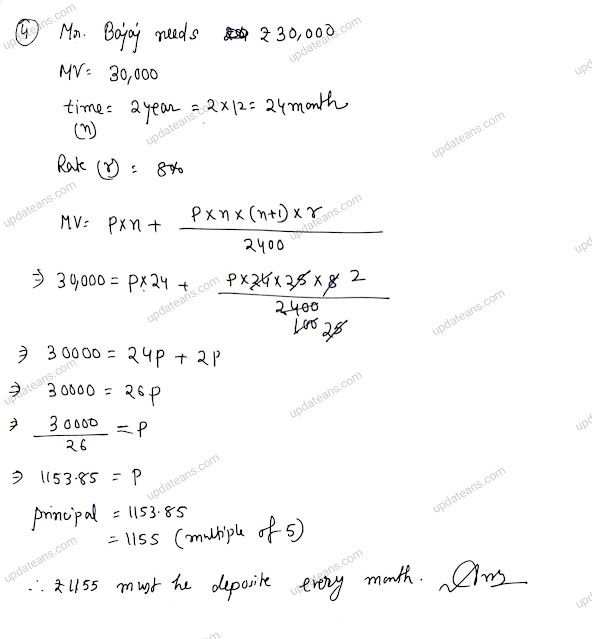 ④ Mr. Bajaj needs ₹30,000
MV = 30,000
time = 2 year = 2 × 12 = 24 month
(n)
Rate (r) = 8%
MV = P×n + P×n×(n+1)×r
2400
⇒ 30,000 = P×24 + P×24×25×8 2
2400
100 25
⇒ 30000 = 24P + 2P
⇒ 30000 = 26P
⇒ 30000 = P
26
⇒ 1153.85 = P
principal = 1153.85
= 1155 (multiple of 5)
∴ ₹1155 must be deposite every month. Ans
updateans.com